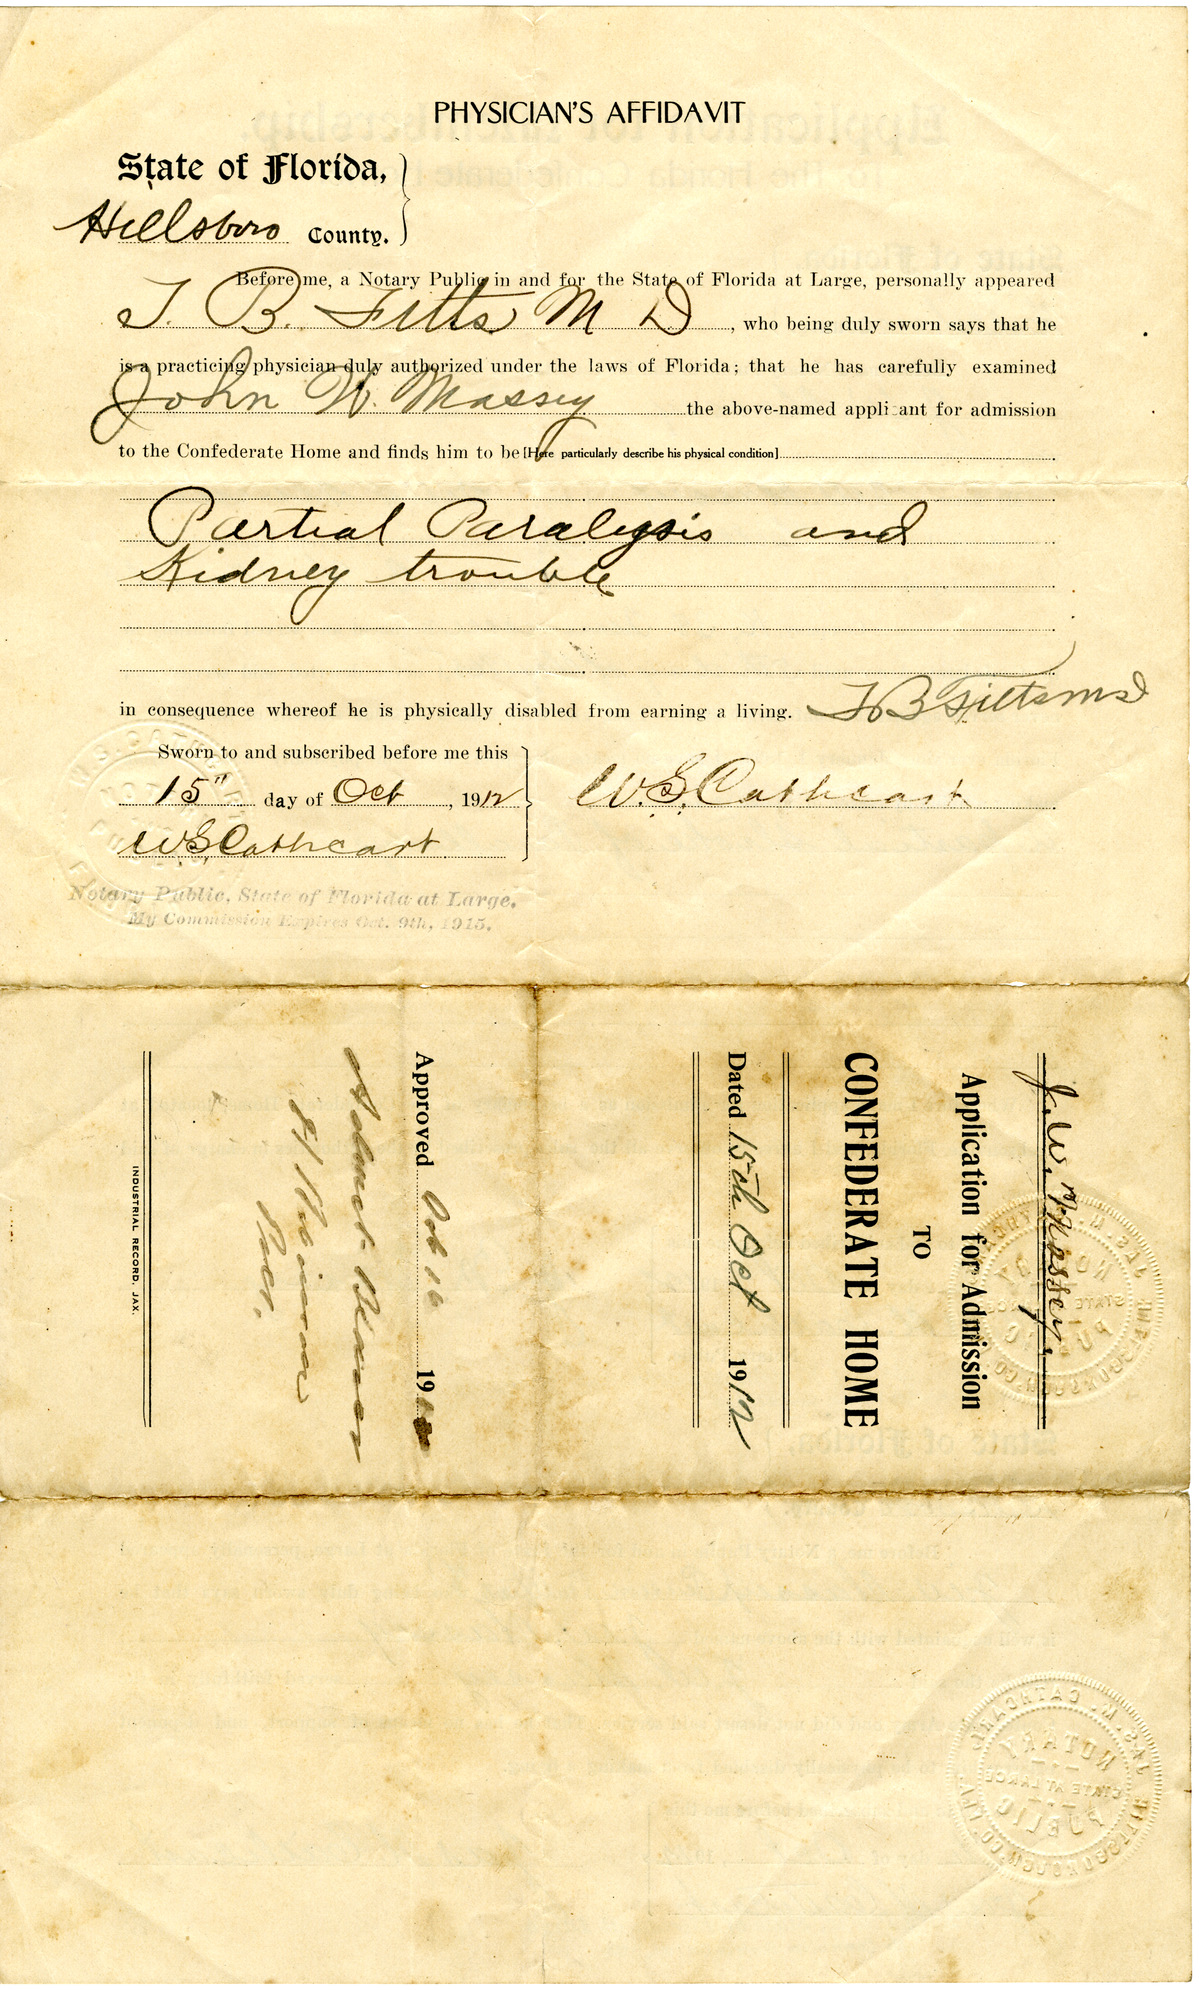 PHYSICIAN'S AFFIDAVIT
State of Florida,
Hillsboro County.
Before me, a Notary Public in and for the State of Florida at Large, personally appeared
T. B. Fitts M D, who being duly sworn says that he
is a practicing physician duly authorized under the laws of Florida; that he has carefully examined
John W. Massey the above-named applicant for admission
to the Confederate Home and finds him to be [Here particularly describe his physical condition]
Partial Paralysis and
Kidney trouble
in consequence whereof he is physically disabled from earning a living. B Fitts MD
Sworn to and subscribed before me this
15" day of Oct, 1912
W.S. Cathcart
W.S. Cathcart
Notary Public, State of Florida at Large.
My Commission Expires Oct. 9th, 1915.
J. W. Massey.
Application for Admission
TO
CONFEDERATE HOME
Dated 15th Oct 1912
Approved Oct 16 19
Robinson
Pres.
INDUSTRIAL RECORD, JAX.
JAS. M. CATHCART
HILLSBOROUGH CO. FLA.
NOTARY
STATE AT LARGE
PUBLIC